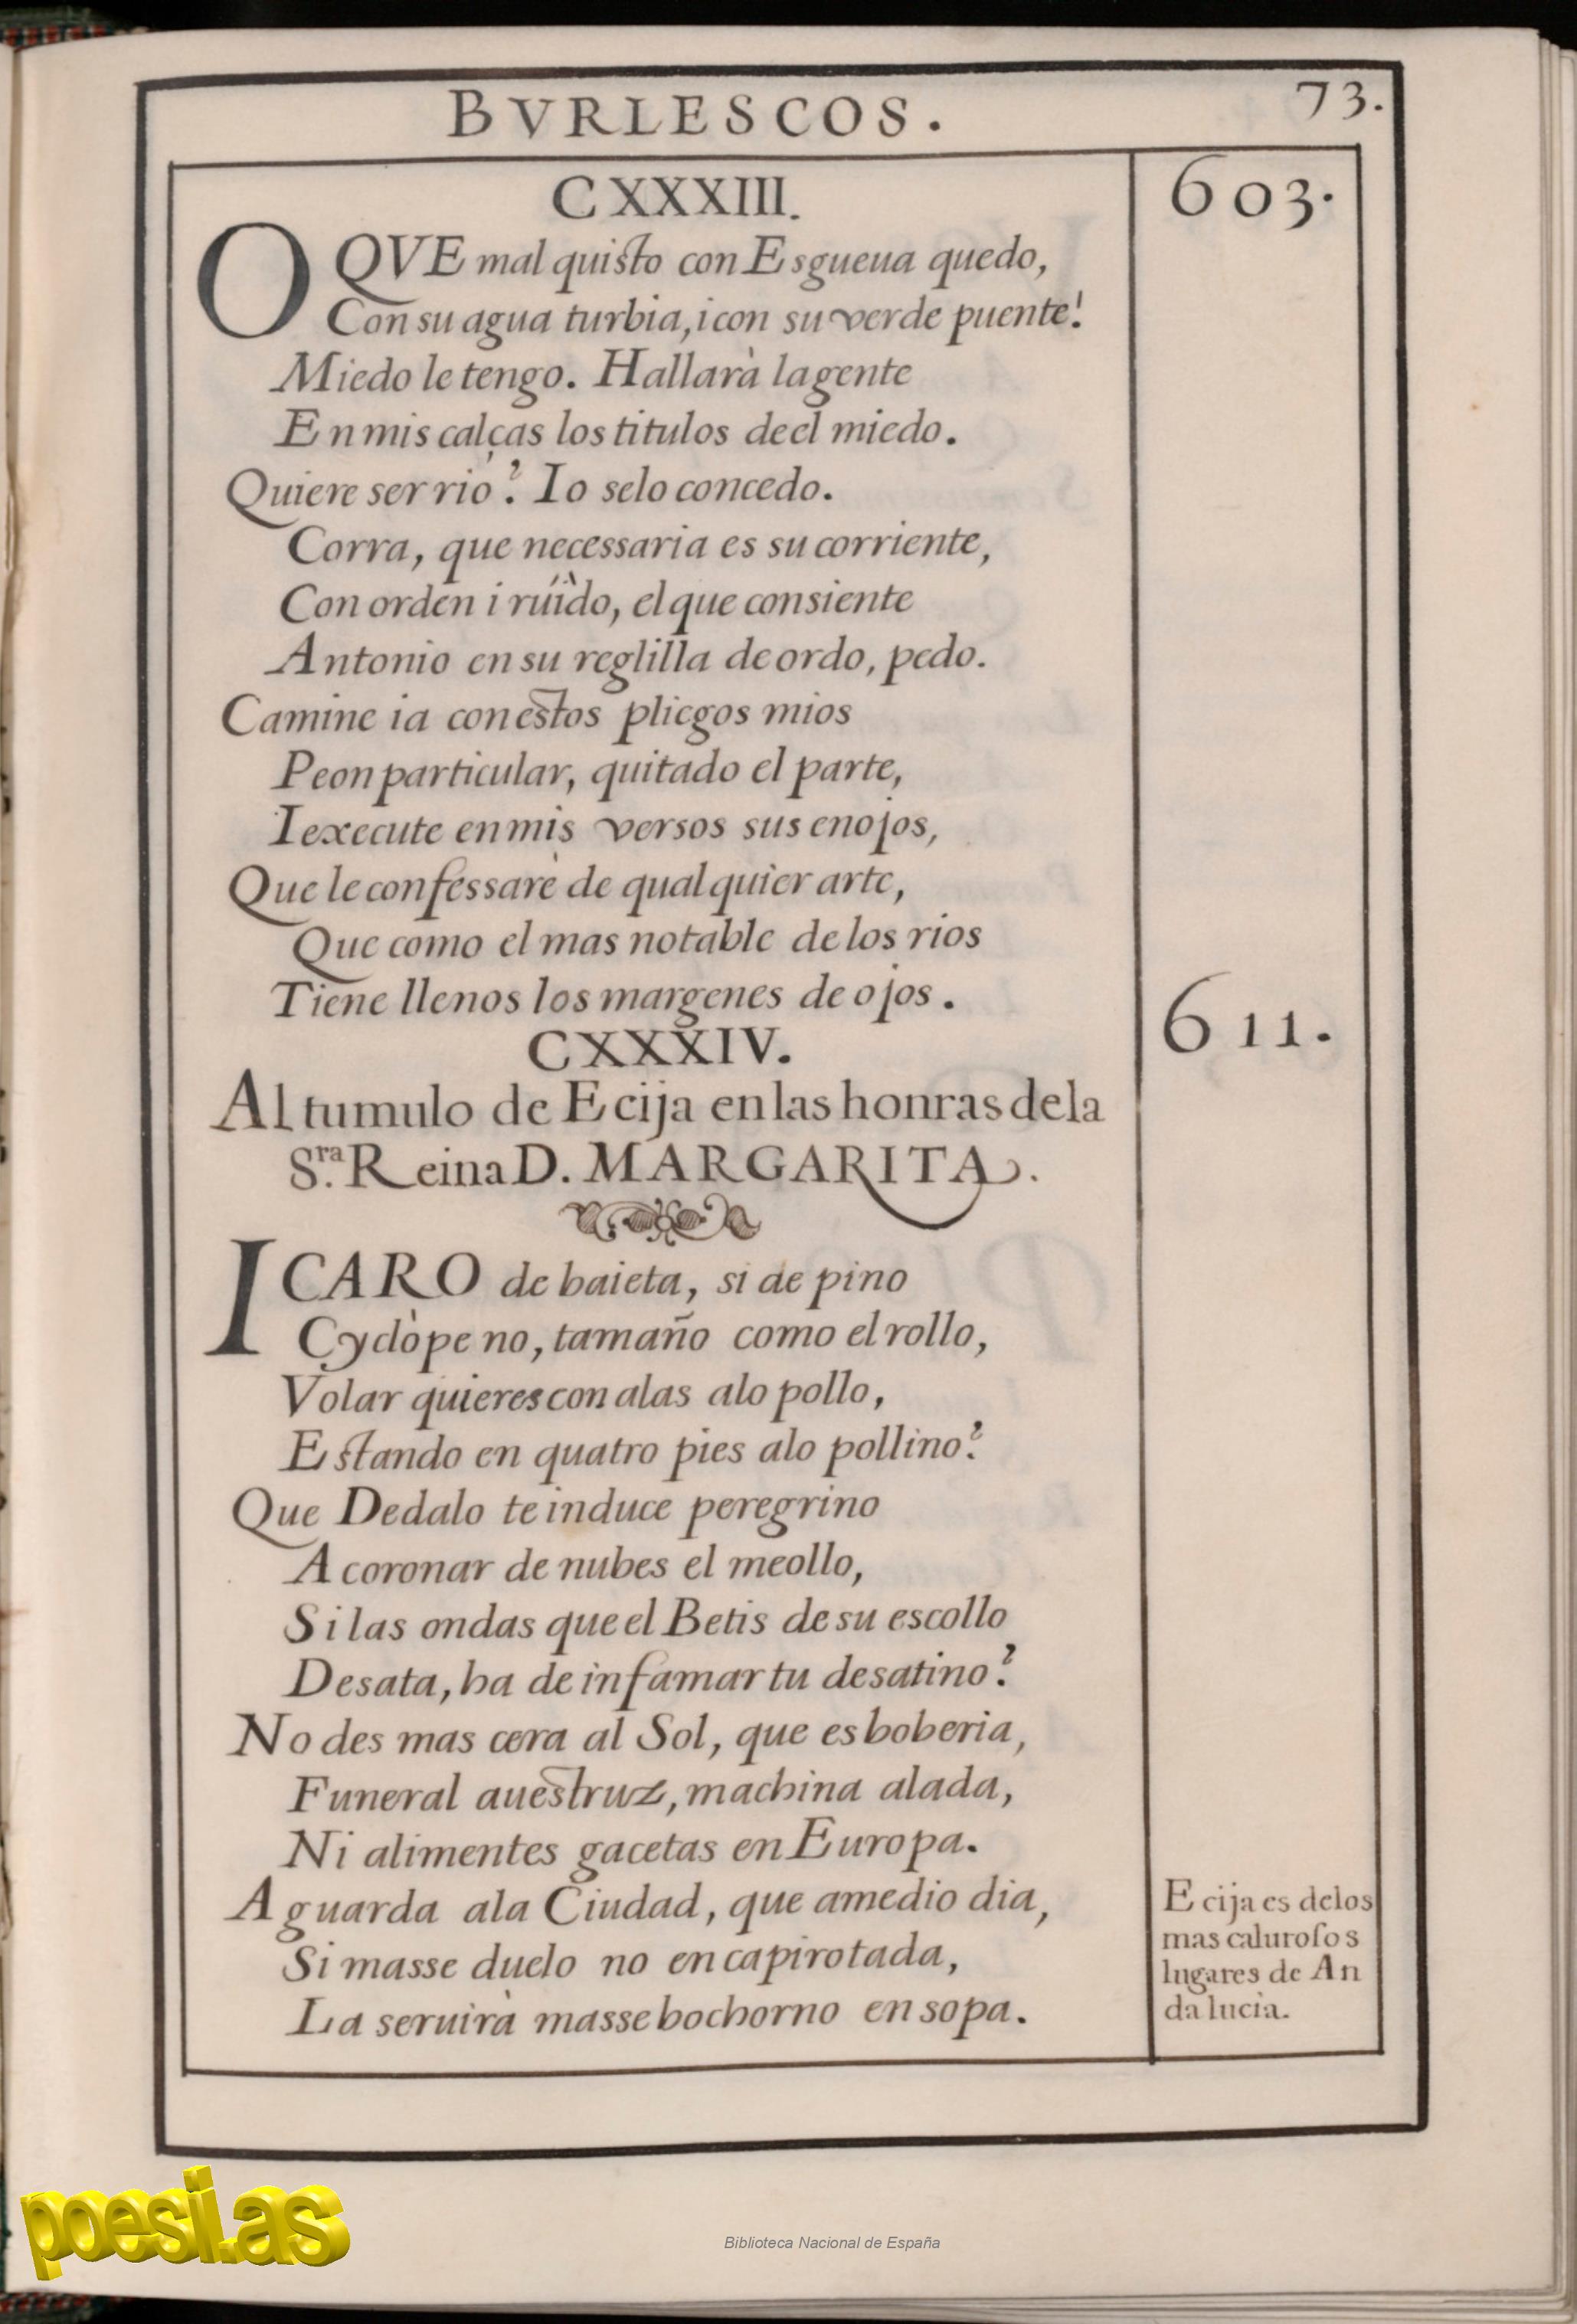 BVRLESCOS.
73.
CXXXIII.
603.
O QVE mal quisto con Esgueua quedo,
Con su agua turbia, i con su verde puente!
Miedo le tengo. Hallarà la gente
En mis calças los titulos de el miedo.
Quiere ser rio? Io se lo concedo.
Corra, que necessaria es su corriente,
Con orden i rúìdo, el que consiente
Antonio en su reglilla de ordo, pedo.
Camine ia con estos pliegos mios
Peon particular, quitado el parte,
I execute en mis versos sus enojos,
Que le confessarè de qual quier arte,
Que como el mas notable de los rios
Tiene llenos los margenes de ojos.
CXXXIV.
611.
Al tumulo de Ecija en las honras de la
S.ra Reina D. MARGARITA.
ICARO de baieta, si de pino
Cyclòpe no, tamaño como el rollo,
Volar quieres con alas alo pollo,
Estando en quatro pies alo pollino?
Que Dedalo te induce peregrino
A coronar de nubes el meollo,
Si las ondas que el Betis de su escollo
Desata, ha de infamar tu desatino?
No des mas cera al Sol, que es boberia,
Funeral auestruz, machina alada,
Ni alimentes gacetas en Europa.
Aguarda ala Ciudad, que amedio dia,
Si masse duelo no en capirotada,
La seruirà masse bochorno en sopa.
Ecija es delos
mas caluroſos
lugares de An
dalucia.
poesi.as
Biblioteca Nacional de España